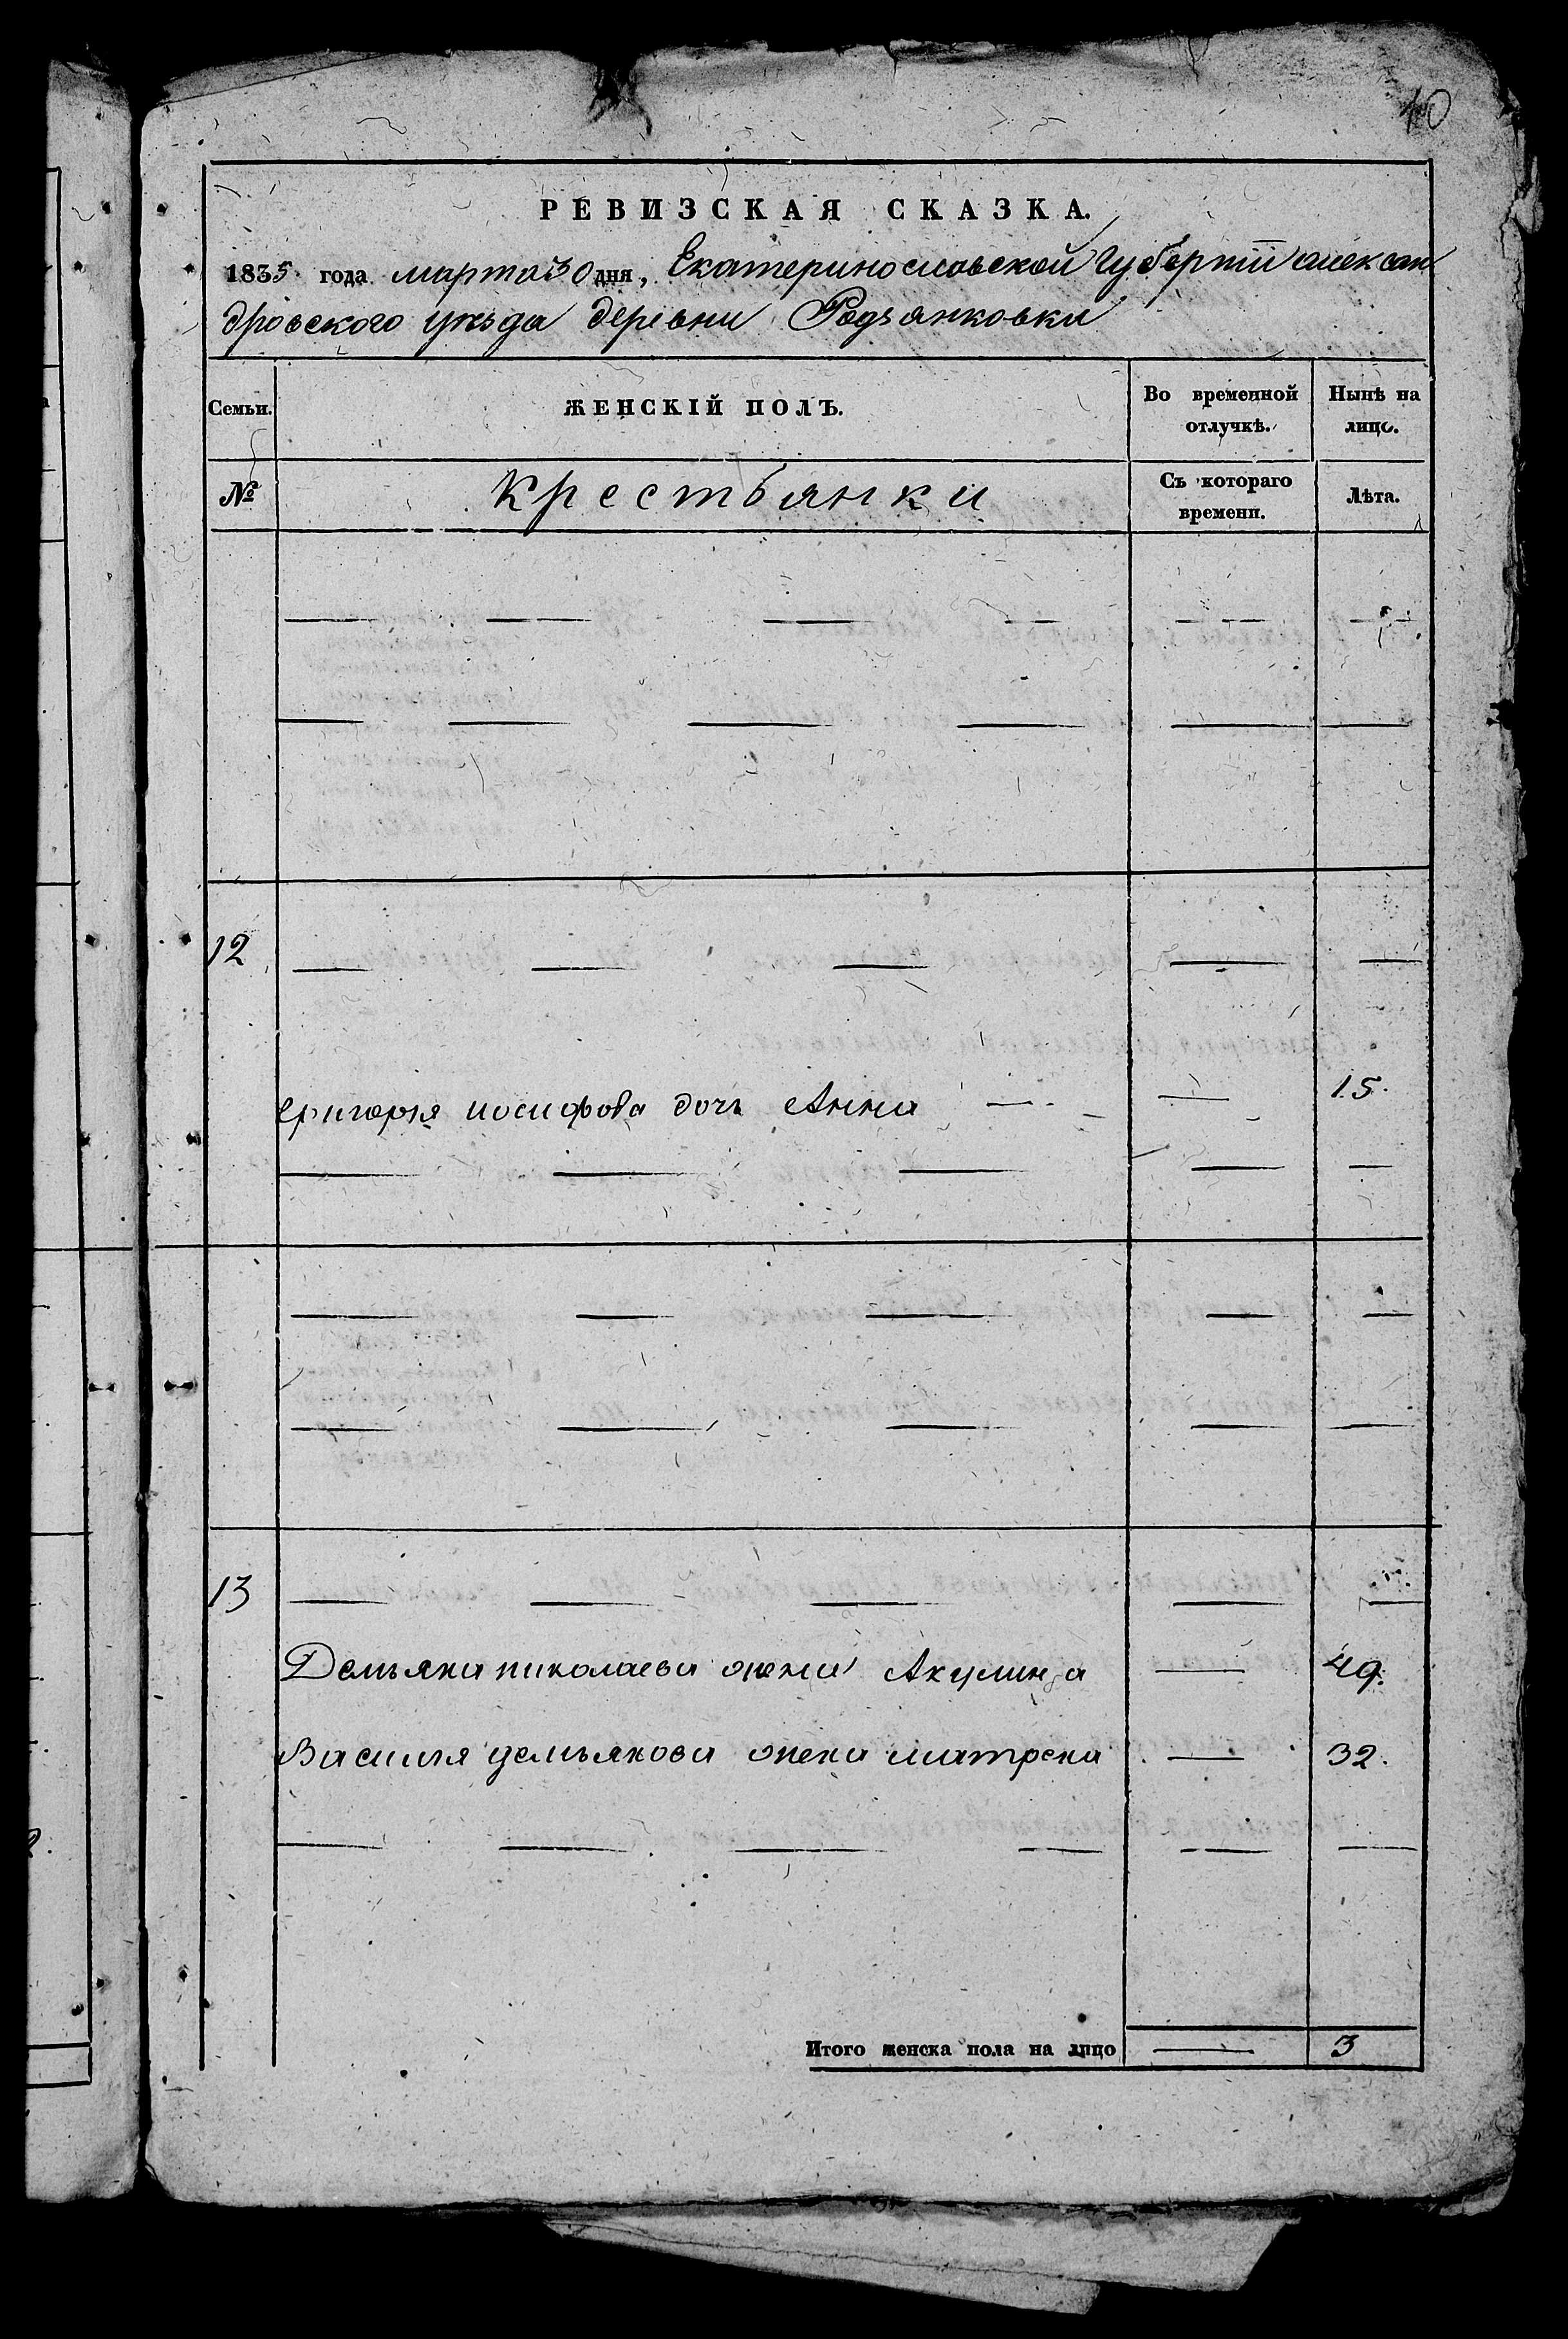 40
РЕВИЗСКАЯ СКАЗКА.
1835 года марта 30 дня, Екатеринославской Губерніи алексан
дровского уѣзда деревни Родзянковки
Семьи. ЖЕНСКІЙ ПОЛЪ. Во временной отлучкѣ. Нынѣ на лицо.
№ Крестьянки Съ котораго времени. Лѣта.
— — — — — —
— — — — — —
12 — — — — —
григорія иосифова дочь Анна — — 15.
— — — — —
— — — — —
— — — — —
13 — — — — —
Демьяна николаева жена Акулина — 49.
Василия демьянова жена матрена — 32.
— — — — — —
Итого женска пола на лицо — 3